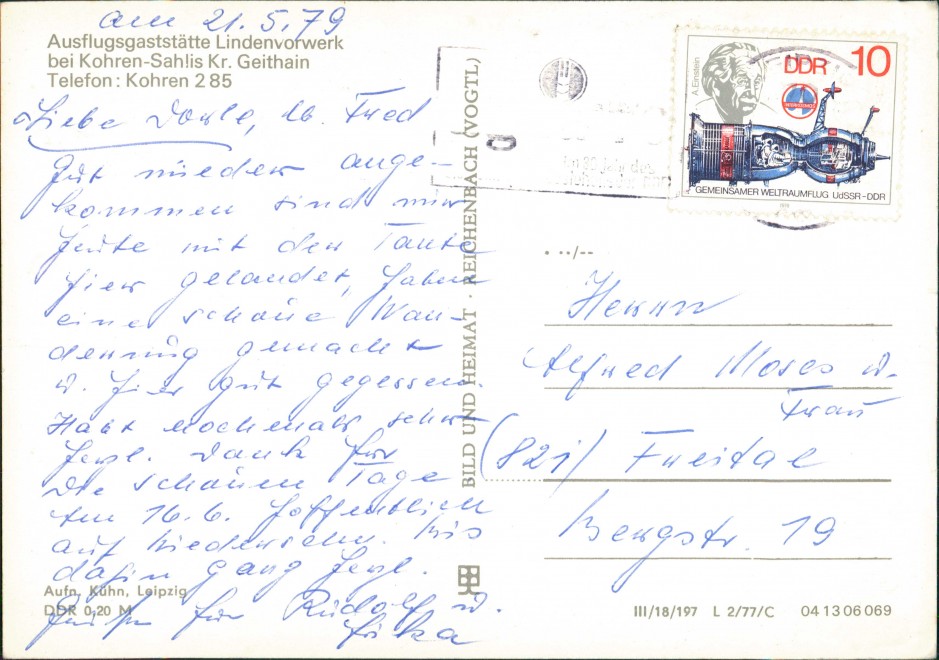 am 21.5.79
Ausflugsgaststätte Lindenvorwerk
bei Kohren-Sahlis Kr. Geithain
Telefon: Kohren 2 85
Liebe Dorle, lb. Fred
Gut wieder ange-
kommen sind wir
heute mit der Tante
hier gelandet, haben
eine schöne Wan-
derung gemacht
u. hier gut gegessen.
Habt nochmals sehr
herzl. Dank für
die schönen Tage
Am 16.6. hoffentlich
auf Wiedersehn. Bis
dahin ganz herzl.
Aufn. Kühn, Leipzig
DDR 0,20 M
Grüße für Rudolf u.
BILD UND HEIMAT · REICHENBACH (VOGTL)
A. Einstein
DDR 10
INTERKOSMOS
GEMEINSAMER WELTRAUMFLUG UdSSR-DDR
Im 30. Jahr der
Herrn
Alfred Moses u.
Frau
(821) Freital
Bergstr. 19
III/18/197 L 2/77/C 04 13 06 069